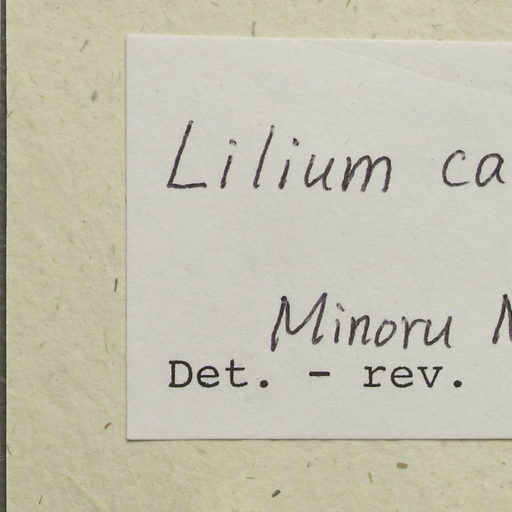 Lilium ca
Minoru N
Det. - rev.